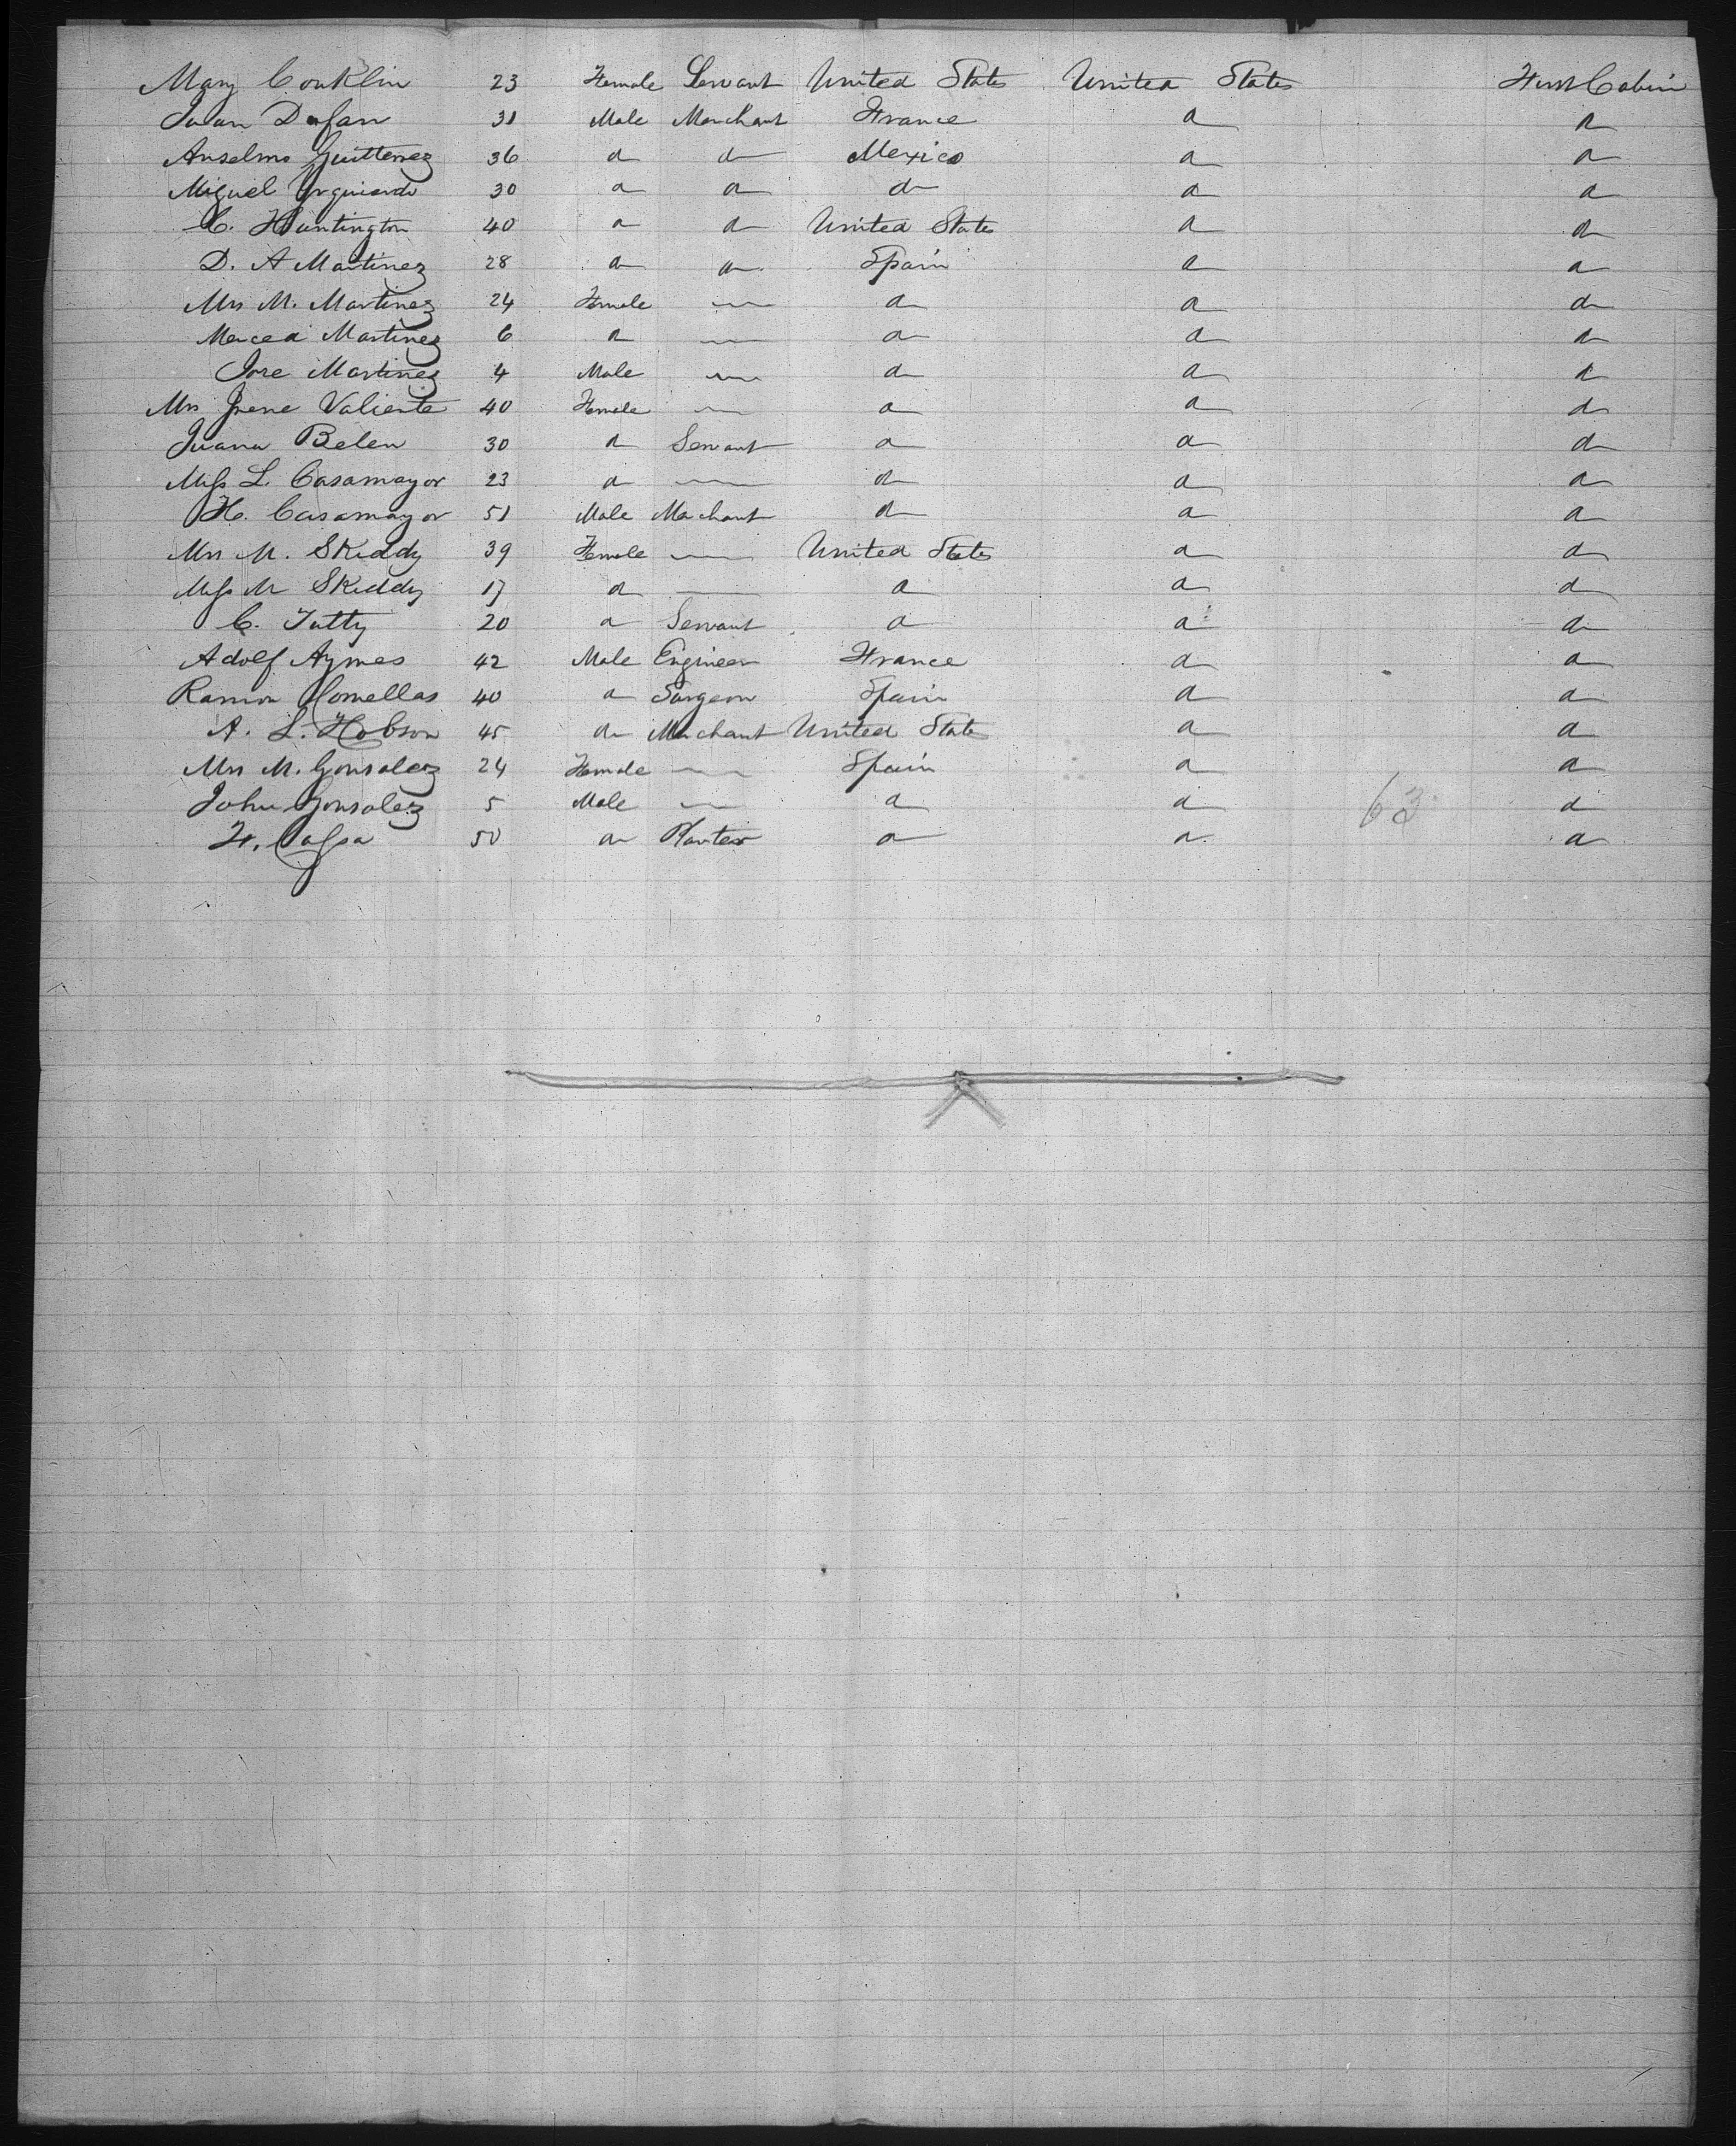 Mary Conklin 23 Female Servant United States United States First Cabin
Juan Dufau 31 Male Merchant France d d
Anselmo Guitterrez 36 d d Mexico d d
Miguel Yrquierdo 30 d d d d d
C. Huntington 40 d d United States d d
D. A Martinez 28 d d Spain d d
Mrs M. Martinez 24 Female — d d d
Merced Martinez 6 d — d d d
Jose Martinez 4 Male — d d d
Mrs Irene Valiente 40 Female — d d d
Juana Belen 30 d Servant d d d
Miss L. Casamayor 23 d — d d d
H. Casamayor 51 Male Merchant d d d
Mrs M. Skiddy 39 Female — United States d d
Miss M Skiddy 17 d — d d d
C. Tutty 20 d Servant d d d
Adolf Aymes 42 Male Engineer France d d
Ramon Comellas 40 d Surgeon Spain d d
A. L. Hobson 45 d Merchant United States d d
Mrs M. Gonsalez 24 Female — Spain d d
John Gonsalez 5 Male — d d 63 d
50 d Planter d d d